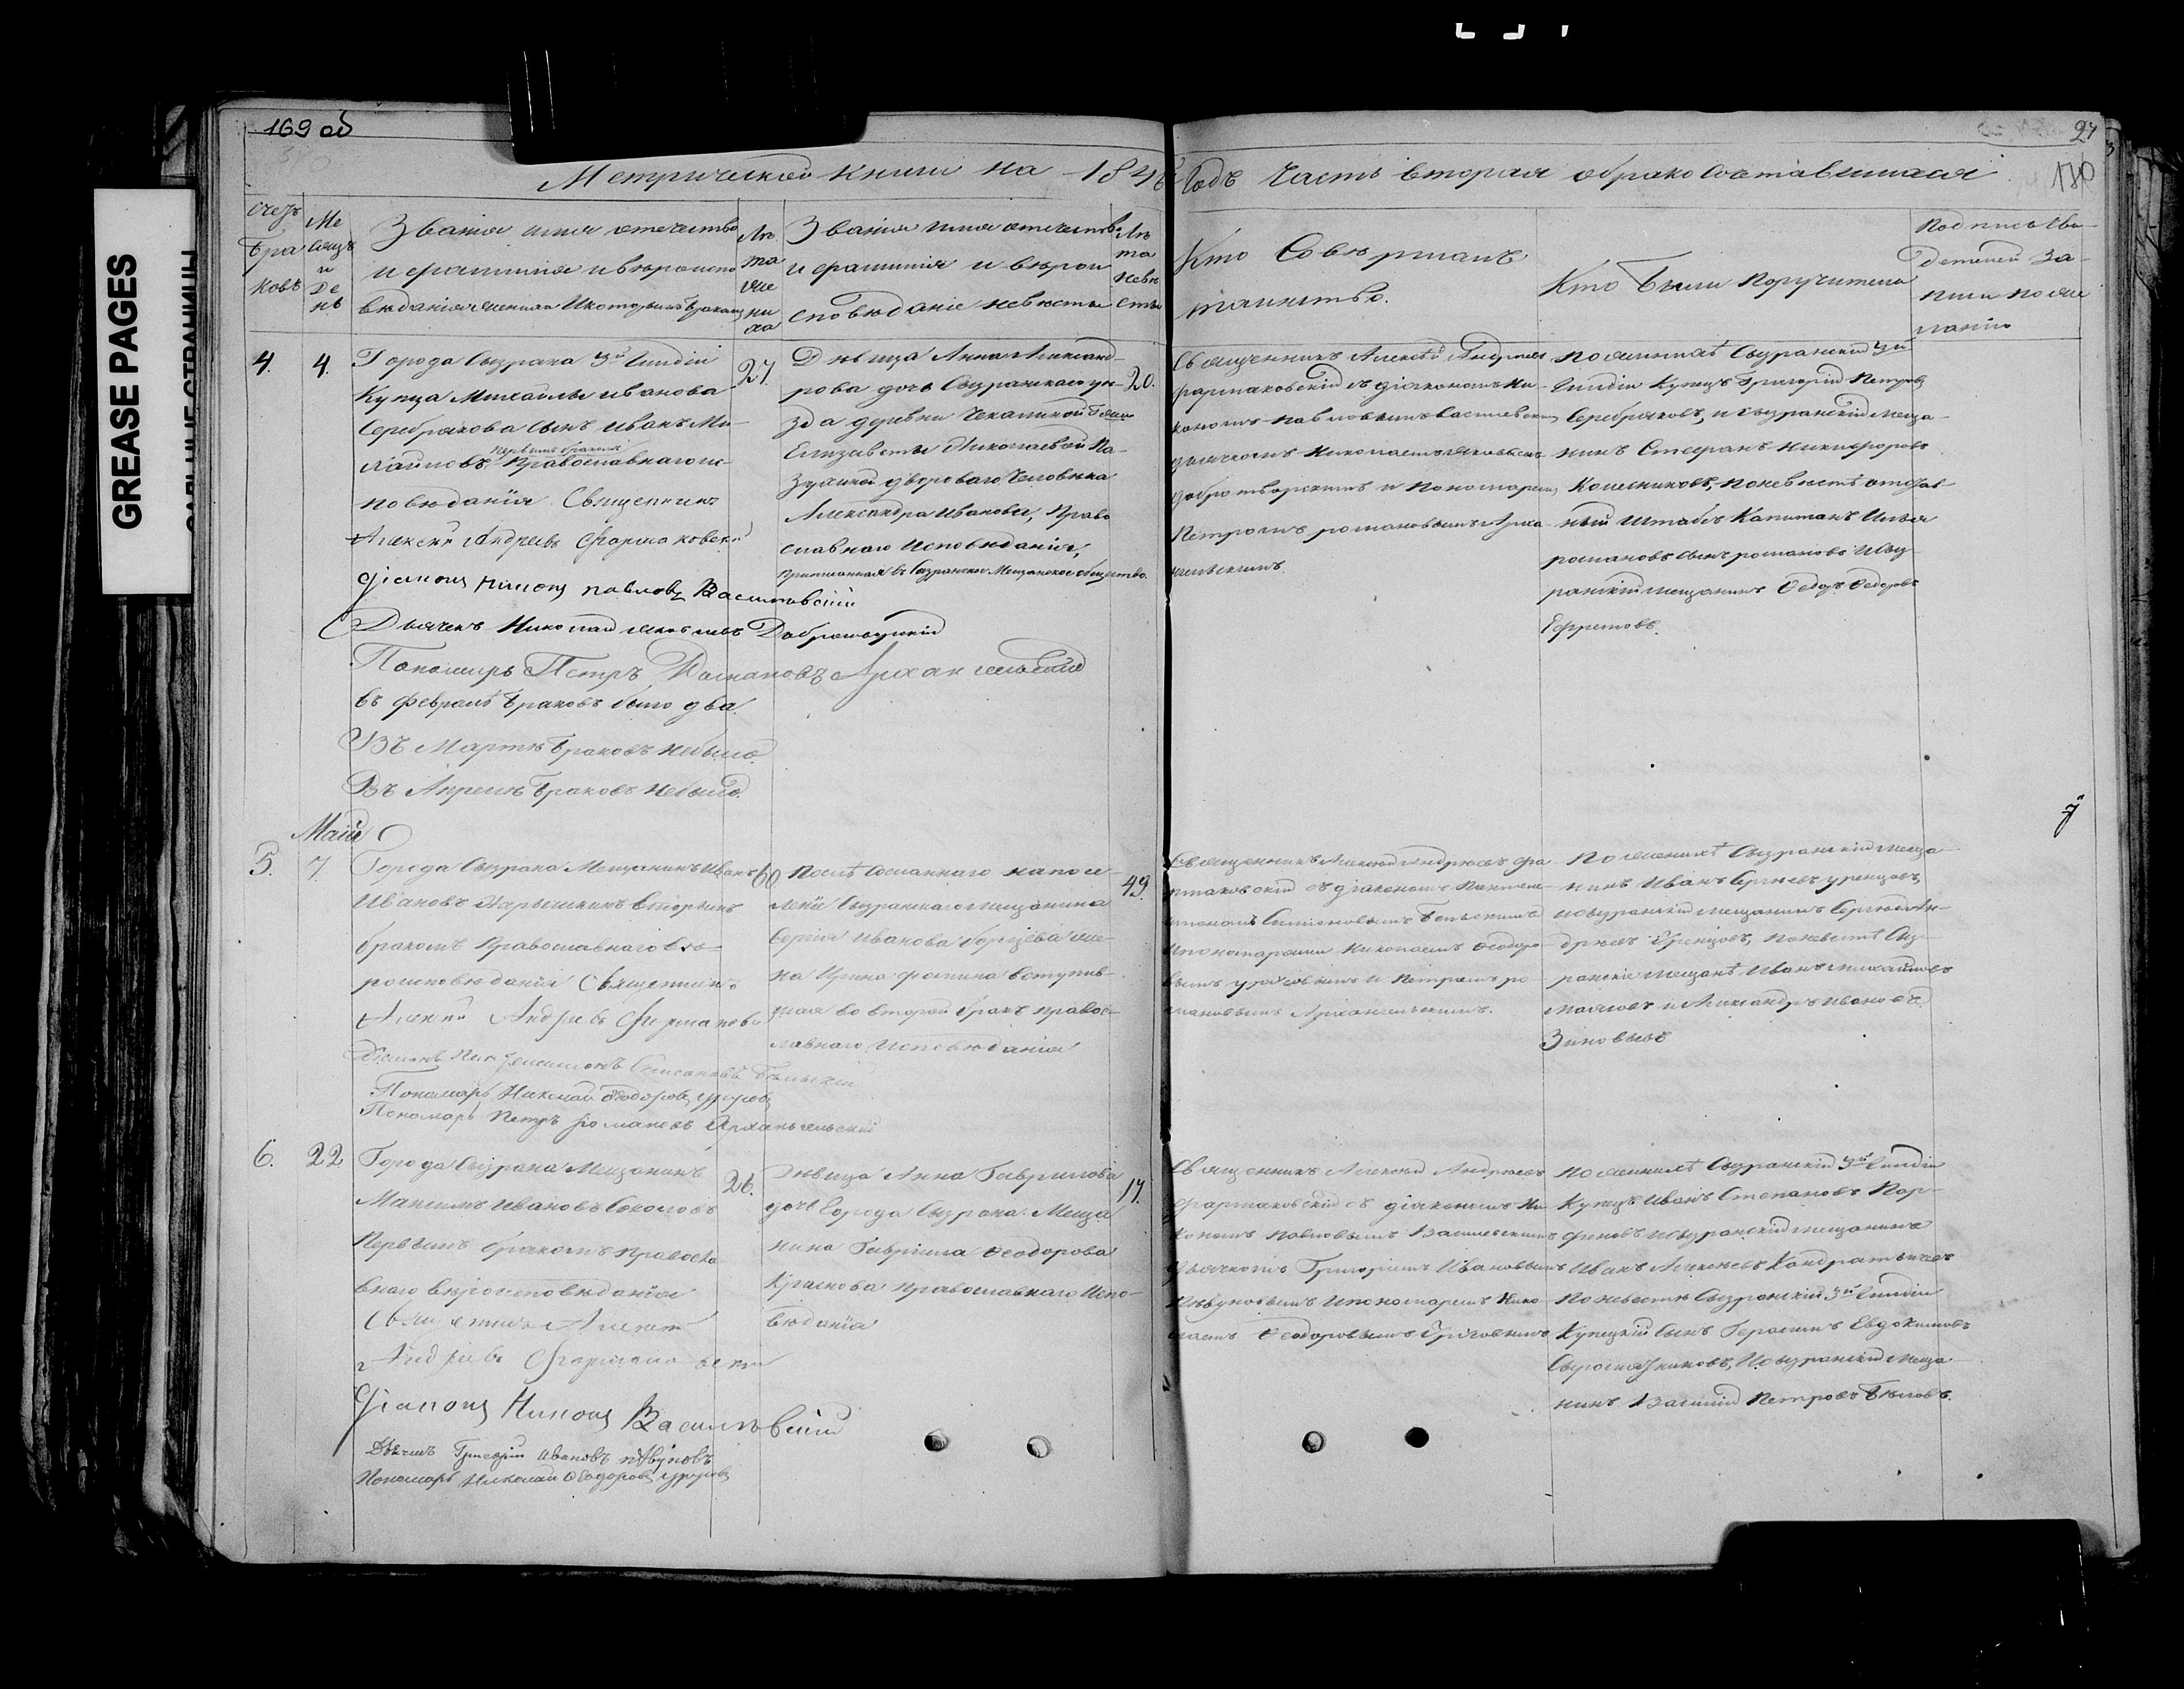 GREASE PAGES
169 об
27
170
Метрической книги на 1846 Годъ Часть вторая о бракосочетавшихся
Счетъ браковъ
Месяцъ и День
Звания имя отечество
и фамилия и вероиспо
ведания жениха и которымъ бракомъ
Лѣта жениха
Звания имя отечество
и фамилия и верои
споведание невесты
Лѣта невесты
Кто Совершалъ
таинство.
Кто были поручители
Подпись сви
детелей за
писи по же
ланию
4.
4.
Города Сызрана 3й Гилдіи
Купца Михайлы Иванова
Серебрякова Сынъ Иванъ Ми-
хайловъ, первымъ бракомъ Православнаго ис-
поведанія Священникъ
Алексѣй Андреевъ Фармаковскій
Діаконъ Никонъ Павловъ Василевскій
Дьячекъ Николай Яковлевъ Добротворскій
Пономарь Петръ Романовъ Архангельскій
въ февралѣ браковъ было два.
Въ Мартѣ браковъ небыло.
Въ Апрелѣ браковъ небыло.
27.
Дѣвица Анна Александ-
рова дочь Сызранскаго уѣ-
зда деревни Чекалиной Г-жи
Елизаветы Николаевой
двороваго человека
Александра Иванова, Право
славнаго Исповеданія,
приписанная въ Сызранское Мещанское общество.
20.
Священникъ Алексѣй Андреевъ
Фармаковскій съ діакономъ Ни-
кономъ Павловымъ Василевскимъ
дьячкомъ Николаемъ Яковлевымъ
Добротворскимъ и Пономаремъ
Петромъ Романовымъ Арха-
нгельскимъ.
По женихѣ Сызранскій 3й
Гилдіи Купецъ Григорій Петровъ
Серебряковъ, и Сызранскій меща-
нинъ Стефанъ Никифоровъ
Колесниковъ, по невестѣ отстав-
ный Штабсъ Капитанъ Илья
Романовъ сынъ Романовъ и Сыз-
ранскій мещанинъ Федоръ Федоровъ
Ефремовъ.
Маій
5.
7.
Города Сызрана Мещанинъ Иванъ
Ивановъ Нарышкинъ вторымъ
бракомъ Православнаго вѣ-
роисповеданія Священникъ
Алексѣй Андреевъ Фармаковс
Діаконъ Пантелеимонъ Симеоновъ Бельскій
Пономарь Николай Феодоровъ
Пономарь Петръ Романовъ Архангельскій
60
Послѣ Сосланнаго на посе-
леніе Сызранскаго мещанина
Сергія Иванова же-
на Ирина Фомина вступив-
шая во второй бракъ правос-
лавнаго Исповеданія
49.
Священникъ Алексѣй Андреевъ Фа-
рмаковскій съ діакономъ Пантеле-
имономъ Симеоновымъ Бельскимъ
и пономарями Николаемъ Феодоро-
вымъ и Петромъ Ро-
мановымъ Архангельскимъ.
По женихѣ Сызранскій меща-
нинъ Иванъ Сергѣевъ
и Сызранскій мещанинъ Сергѣй Ан-
дреевъ по невестѣ Сыз-
ранскіе мещанѣ Иванъ Михайловъ
Маясовъ и Александръ Ивановъ
Зиновьевъ
6.
22
Города Сызрана Мещанинъ
Максимъ Ивановъ Соколовъ
Первымъ бракомъ Правосла
внаго вероисповеданія
Священникъ Алексѣй
Андреевъ Фармаковскій
Діаконъ Никонъ Василевскій
Дьячекъ Григорій Ивановъ Пѣвуновъ
Пономарь Николай Феодоровъ
26.
Дѣвица Анна Гаврилова
дочь Города Сызрана Меща
нина Гавріила Феодорова
Краснова Православнаго Испо-
веданія
17.
Священникъ Алексѣй Андреевъ
Фармаковскій съ діакономъ Ни
кономъ Павловымъ Василевскимъ
Дьячкомъ Григоріемъ Ивановымъ
Пѣвуновымъ и пономаремъ Нико-
лаемъ Феодоровымъ
По женихѣ Сызранскій 3й Гилдіи
Купецъ Иванъ Степановъ Пор-
финовъ и Сызранскій мещанинъ
Иванъ Алексѣевъ Кондратьевъ
По невестѣ Сызранскій 3й Гилдіи
Купецкій Сынъ Герасимъ Евдокимовъ
Сыромятниковъ, и Сызранскій меща-
нинъ Василій Петровъ Бѣловъ.